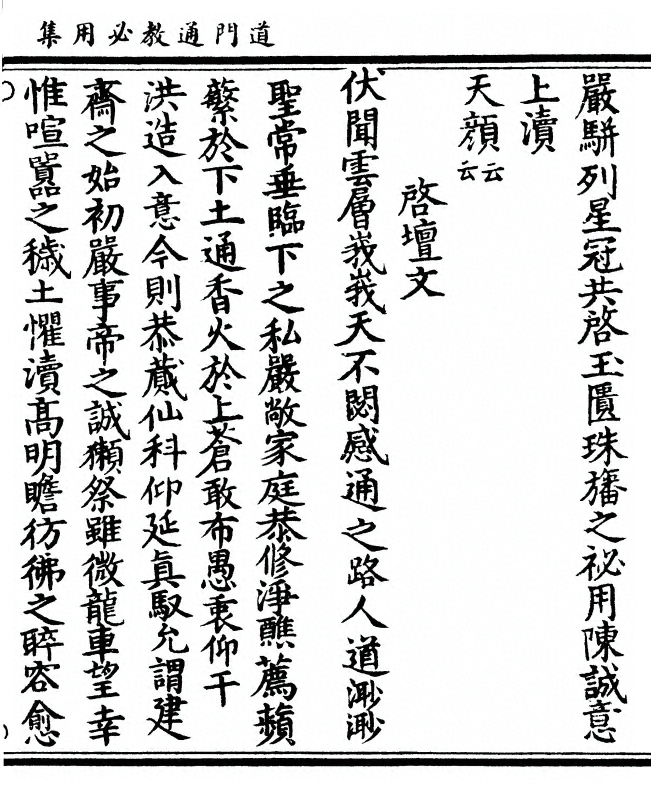 道門通教必用集
嚴駢列星冠共啓玉匱珠旛之祕用陳誠意
上瀆
天顔云云
啓壇文
伏聞雲層峩峩天不閟感通之路人道渺渺
聖常垂臨下之私嚴敞家庭恭修淨醮薦蘋
蘩於下土通香火於上蒼敢布愚衷仰干
洪造入意今則恭蕆仙科仰延眞馭允謂建
齋之始初嚴事帝之誠獺祭雖微龍車望幸
惟喧嚻之穢土懼瀆高明瞻彷彿之睟容愈